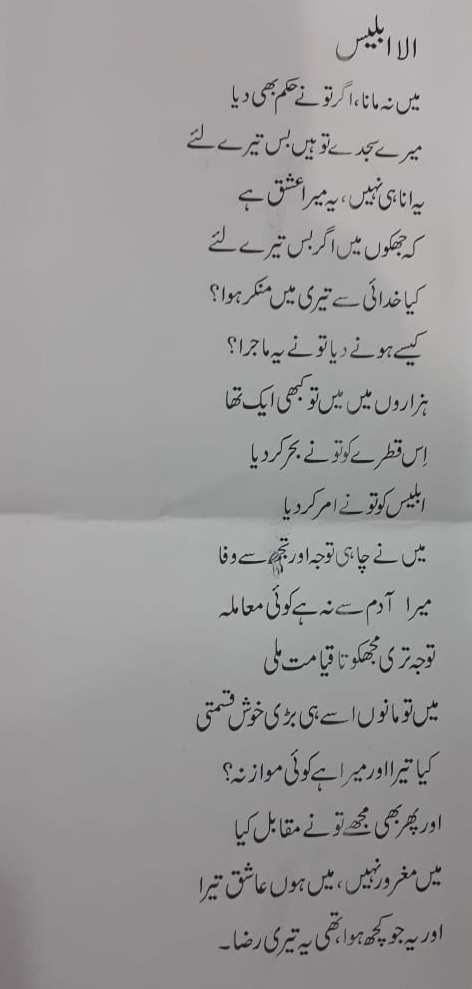 الا ابلیس
میں نہ مانا، اگر تو نے حکم بھی دیا
میرے سجدے تو ہیں بس تیرے لئے
یہ انا ہی نہیں، یہ میرا عشق ہے
کہ جھکوں میں اگر بس تیرے لئے
کیا خدائی سے تیری میں منکر ہوا؟
کیسے ہونے دیا تو نے یہ ماجرا؟
ہزاروں میں میں تو کبھی ایک تھا
اِس قطرے کو تو نے بحر کر دیا
ابلیس کو تو نے امر کر دیا
میں نے چاہی توجہ اور تجھ سے وفا
میرا آدم سے نہ ہے کوئی معاملہ
توجہ تری مجھکو تا قیامت ملی
میں تو مانوں اسے ہی بڑی خوش قسمتی
کیا تیرا اور میرا ہے کوئی موازنہ؟
اور پھر بھی مجھے تو نے مقابل کیا
میں مغرور نہیں، میں ہوں عاشق تیرا
اور یہ جو کچھ ہوا، تھی یہ تیری رضا۔